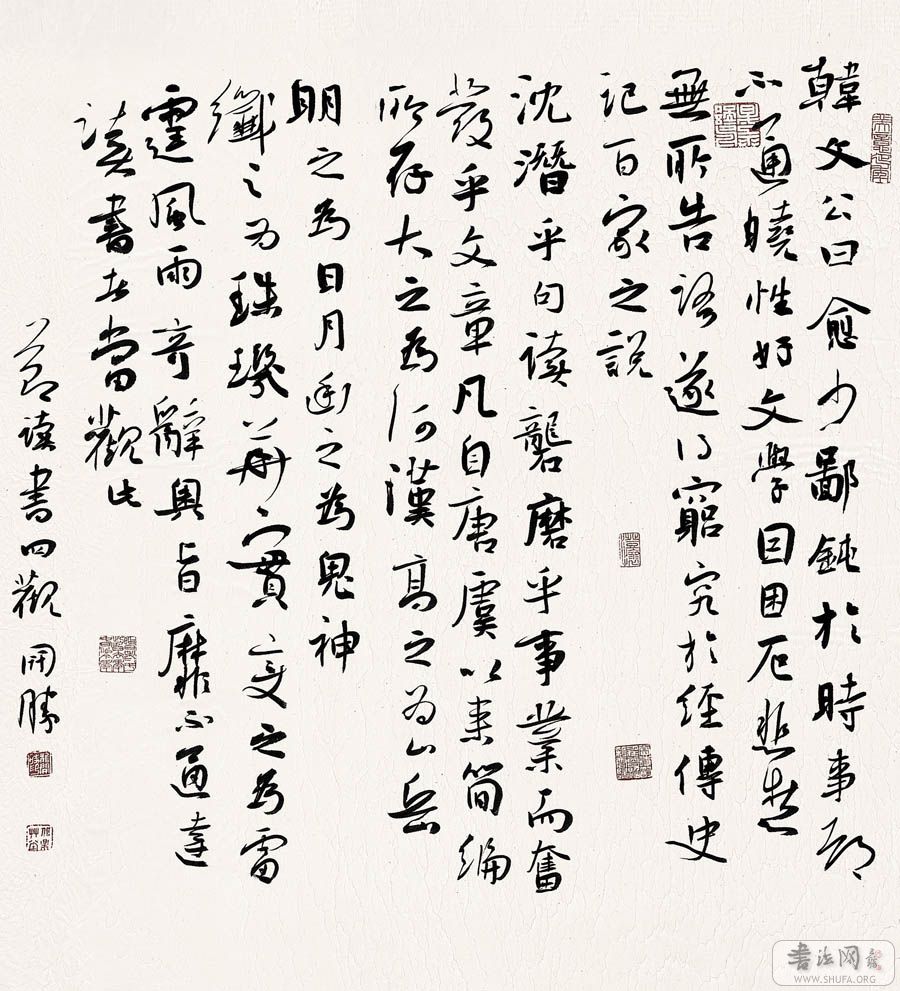 韓文公曰愈少鄙鈍於時事都
不通曉性好文學因困厄悲愁
無所告語遂得窮究於經傳史
記百家之說
沈潛乎句读礱磨乎事業而奮
發乎文章凡自唐虞以来簡编
所存大之為河漢高之為山岳
明之為日月幽之為鬼神
纖之为珠璣華實變之為雷
霆風雨奇辭奥旨靡不通達
读書者當觀此
节读書四觀 開勝
書法网
WWW.SHUFA.ORG